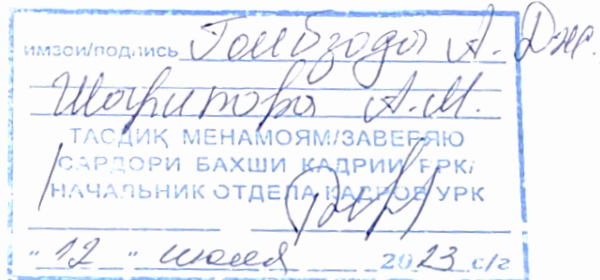 имзои/подпись Гоибзода А. Дж.
Шарипова А.М.
ТАСДИҚ МЕНАМОЯМ/ЗАВЕРЯЮ
САРДОРИ БАХШИ КАДРИИ РРК/
НАЧАЛЬНИК ОТДЕЛА КАДРОВ УРК
"12" июля 2023 с/г